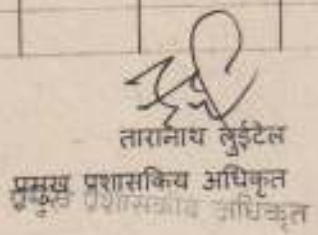 तारानाथ लुईटेल
प्रमुख प्रशासकिय अधिकृत
प्रमुख प्रशासकीय अधिकृत